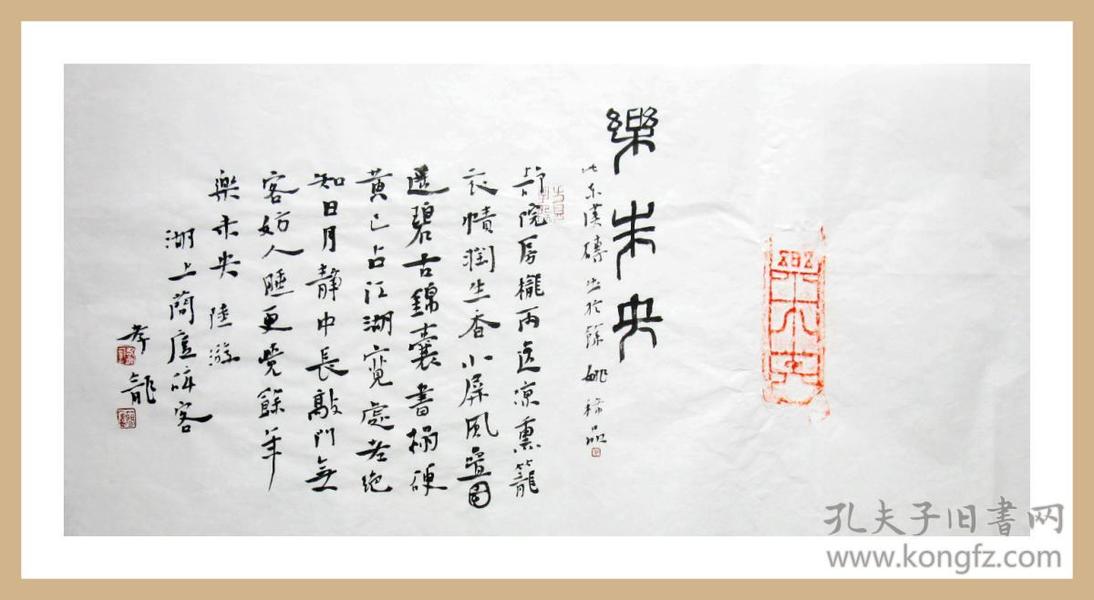 樂未央
樂未央
此系漢磚出於餘姚 稀品
院房櫳雨送凉熏籠
衣幘潤生香小屏風疊圍
遥碧古錦囊書搨硬
黄已占江湖寬處老絶
知日月静中長敲門無
客妨人睡更覺餘年
樂未央 陸游
湖上客
孝龍
孔夫子旧書网
www.kongfz.com